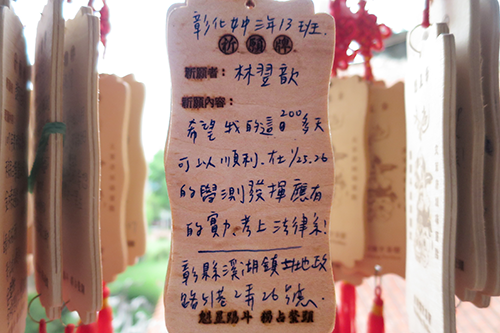 彰化女中三年13班.
祈願牌
祈願者：林翌歆
祈願內容：
希望我的這200多天
可以順利.在1/25.26
的學測發揮應有
的實力.考上法律系!
彰縣溪湖鎮地政
路51巷2弄26號.
魁星踢斗 榜占鰲頭